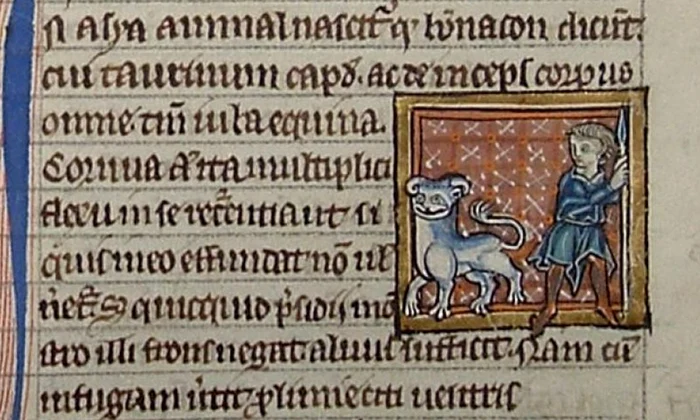 N asya animal nascit᷑ q̄ bōnacon dicūt.
cui taurinum capđ. ac deinceps corpus
omne tm̄ iuba equina.
Cornua aūt ita multiplici
flexu in se recurrentia ut si
quis in eo offendat nō uł
net᷑. S quicquid p̄sidij mō
stro illi frons negat. aluus sufficit. Nam cū
in fugam ūtit᷑ p̱fluuie citi uentris